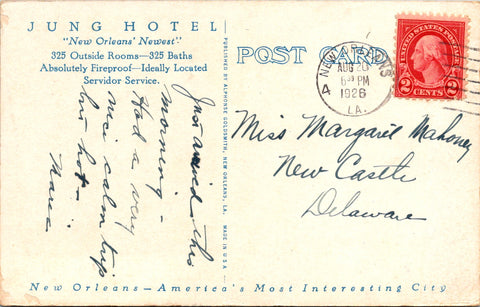 JUNG HOTEL
"New Orleans' Newest"
325 Outside Rooms—325 Baths
Absolutely Fireproof—Ideally Located
Servidor Service.
Just arrived this
morning -
Had a very
nice calm trip
but hot -
Marie
PUBLISHED BY ALPHONSE GOLDSMITH, NEW ORLEANS, LA.
MADE IN U.S.A.
POST CARD
NEW ORLEANS
AUG 20
PM
1926
LA.
4
UNITED STATES POSTAGE
2 CENTS 2
Miss Margaret Mahoney
New Castle
Delaware
New Orleans—America's Most Interesting City